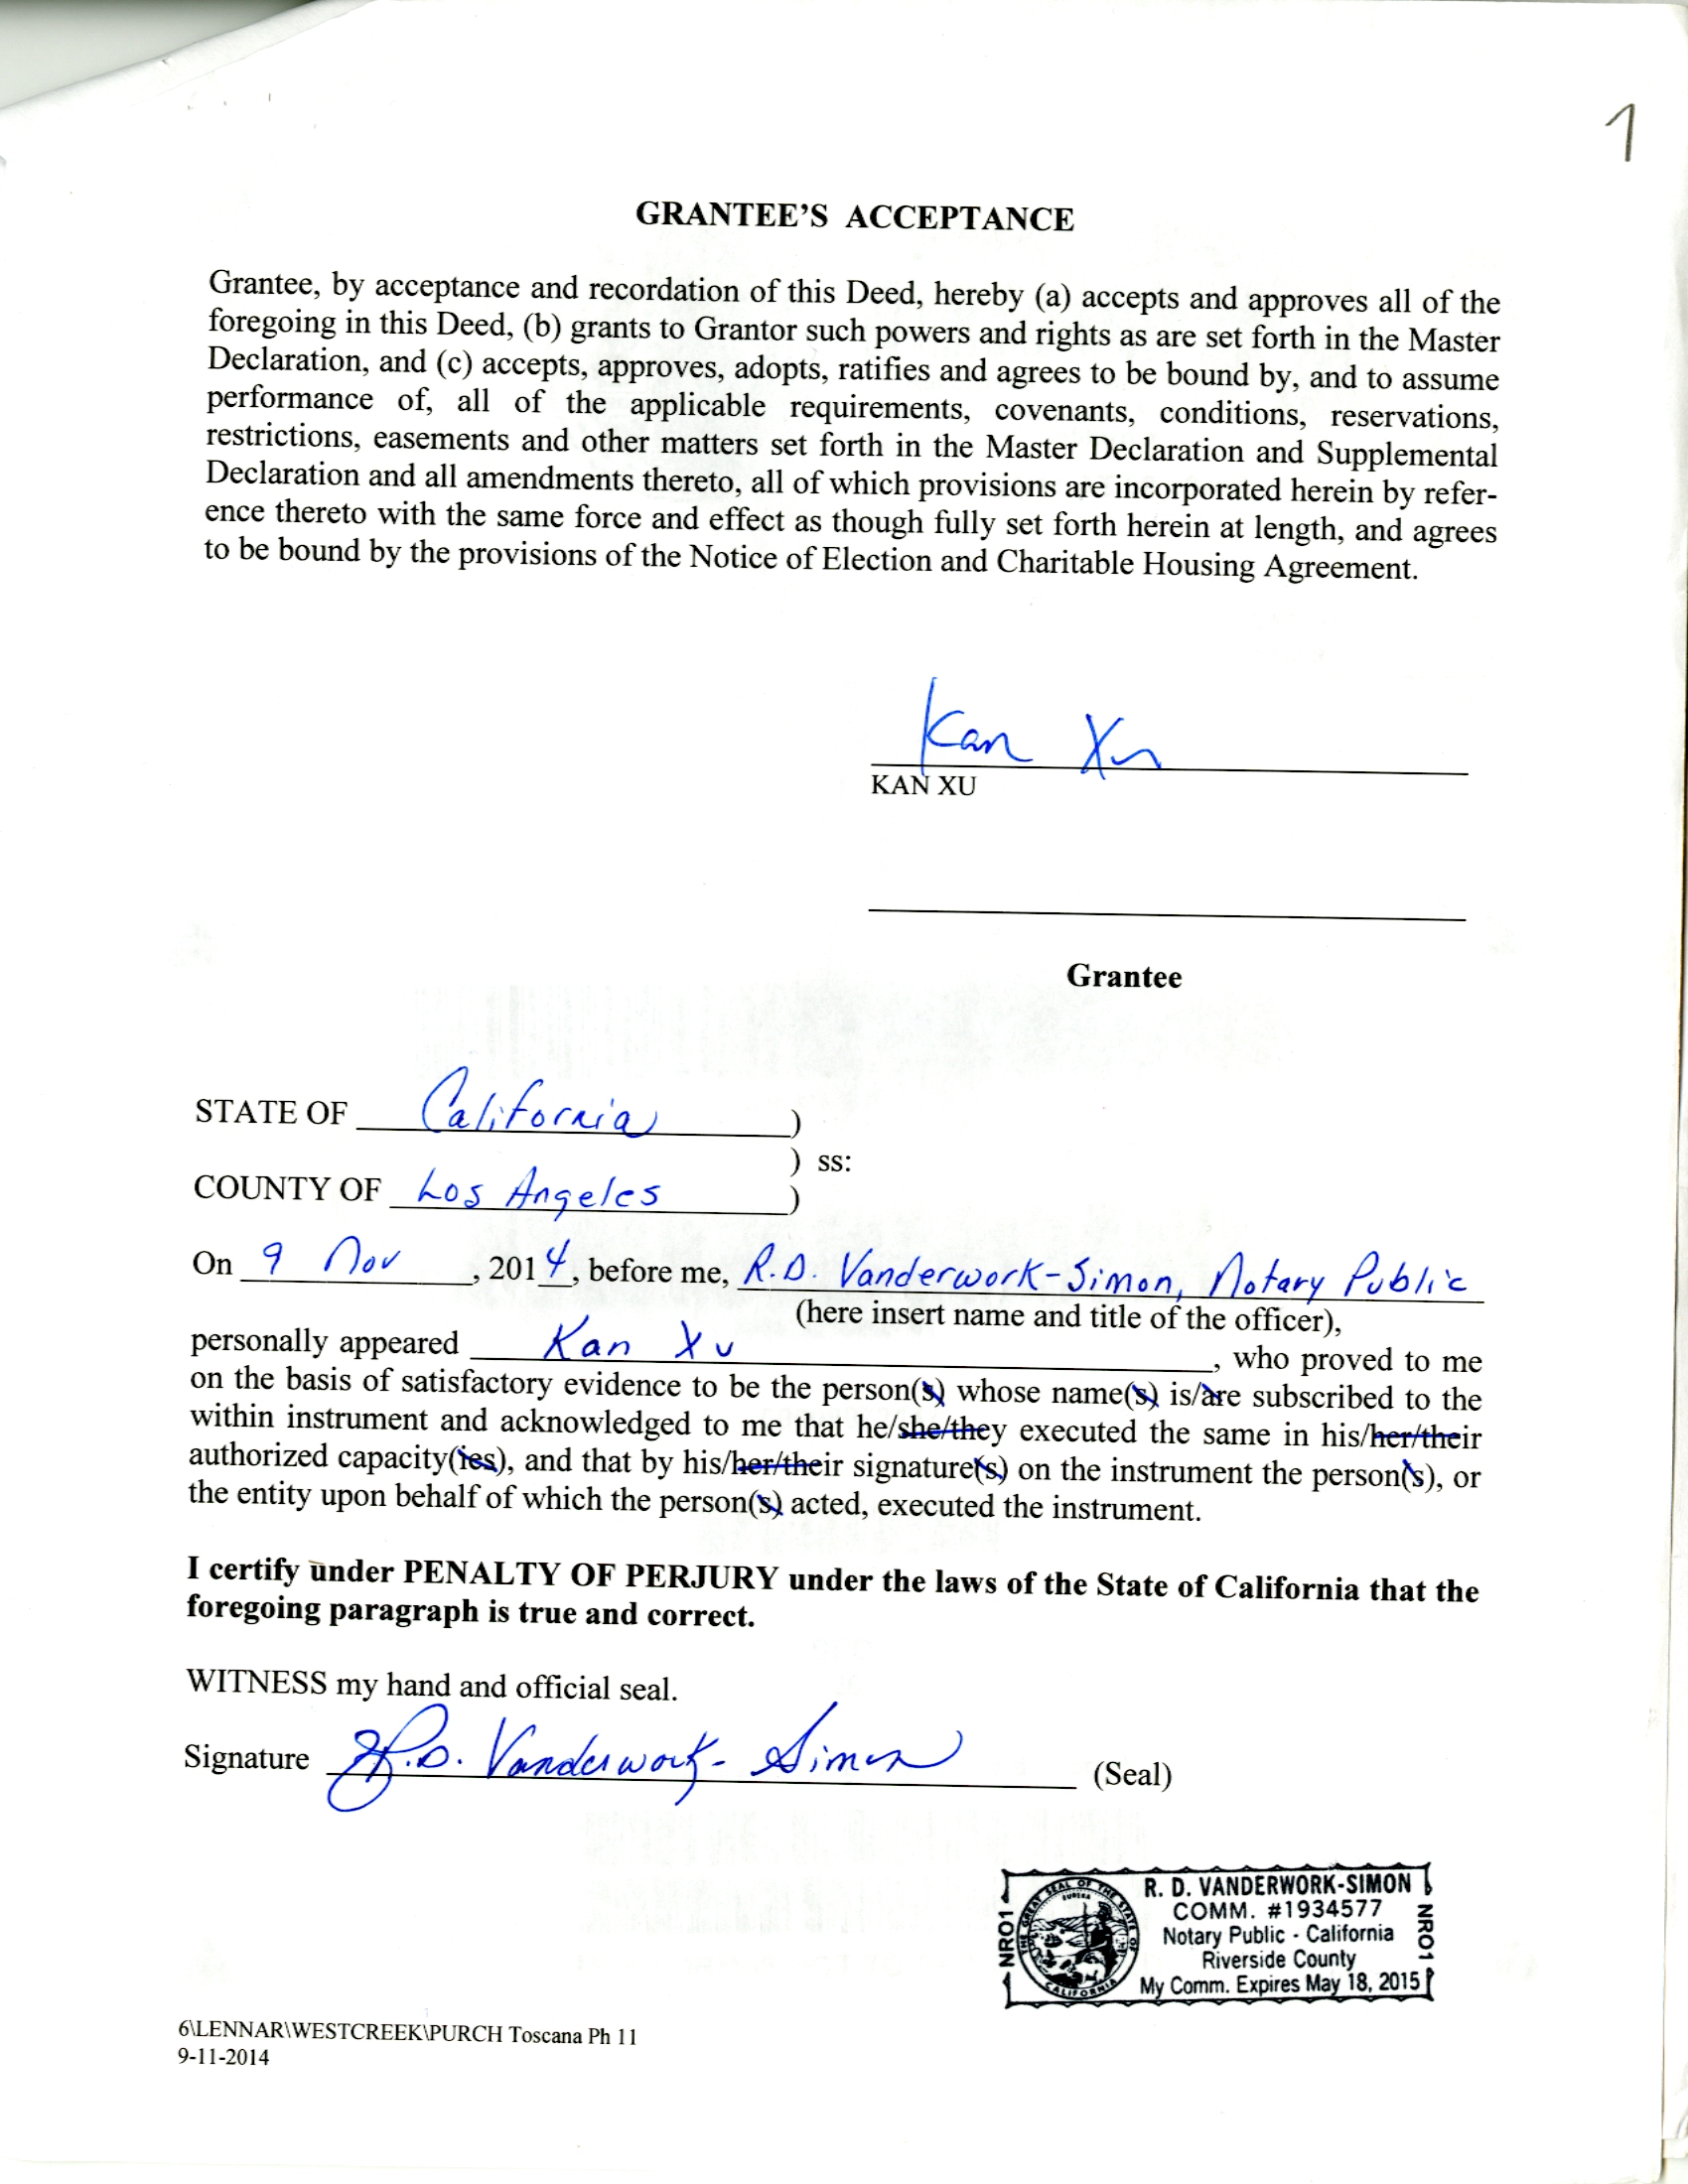 1
GRANTEE'S ACCEPTANCE
Grantee, by acceptance and recordation of this Deed, hereby (a) accepts and approves all of the
foregoing in this Deed, (b) grants to Grantor such powers and rights as are set forth in the Master
Declaration, and (c) accepts, approves, adopts, ratifies and agrees to be bound by, and to assume
performance of, all of the applicable requirements, covenants, conditions, reservations,
restrictions, easements and other matters set forth in the Master Declaration and Supplemental
Declaration and all amendments thereto, all of which provisions are incorporated herein by refer-
ence thereto with the same force and effect as though fully set forth herein at length, and agrees
to be bound by the provisions of the Notice of Election and Charitable Housing Agreement.
Kan Xu
KAN XU
Grantee
STATE OF California )
) ss:
COUNTY OF Los Angeles )
On 9 Nov , 2014, before me, R.D. Vanderwork-Simon, Notary Public
(here insert name and title of the officer),
personally appeared Kan Xu , who proved to me
on the basis of satisfactory evidence to be the person(s) whose name(s) is/are subscribed to the
within instrument and acknowledged to me that he/she/they executed the same in his/her/their
authorized capacity(ies), and that by his/her/their signature(s) on the instrument the person(s), or
the entity upon behalf of which the person(s) acted, executed the instrument.
I certify under PENALTY OF PERJURY under the laws of the State of California that the
foregoing paragraph is true and correct.
WITNESS my hand and official seal.
Signature R.D. Vanderwork-Simon (Seal)
NRO1
THE GREAT SEAL OF THE STATE OF CALIFORNIA
EUREKA
R. D. VANDERWORK-SIMON
COMM. #1934577
Notary Public - California
Riverside County
My Comm. Expires May 18, 2015
NRO1
6\LENNAR\WESTCREEK\PURCH Toscana Ph 11
9-11-2014